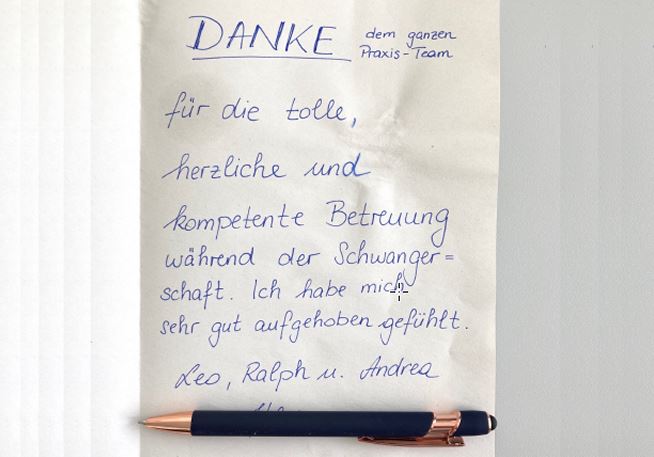 DANKE dem ganzen
Praxis-Team
für die tolle,
herzliche und
kompetente Betreuung
während der Schwanger=
schaft. Ich habe mich
sehr gut aufgehoben gefühlt.
Leo, Ralph u. Andrea